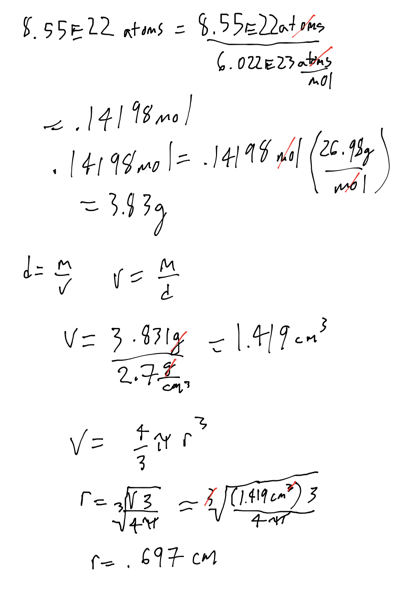 8.55E22 atoms = 8.55E22 atoms / 6.022E23 atoms/mol
= .14198 mol
.14198 mol = .14198 mol (26.98g / mol)
= 3.83g
d = M/V   V = M/d
V = 3.831g / 2.7 g/cm³ = 1.419 cm³
V = 4/3 π r³
r = ³√(V3 / 4π) = ³√((1.419 cm³) 3 / 4π)
r = .697 cm